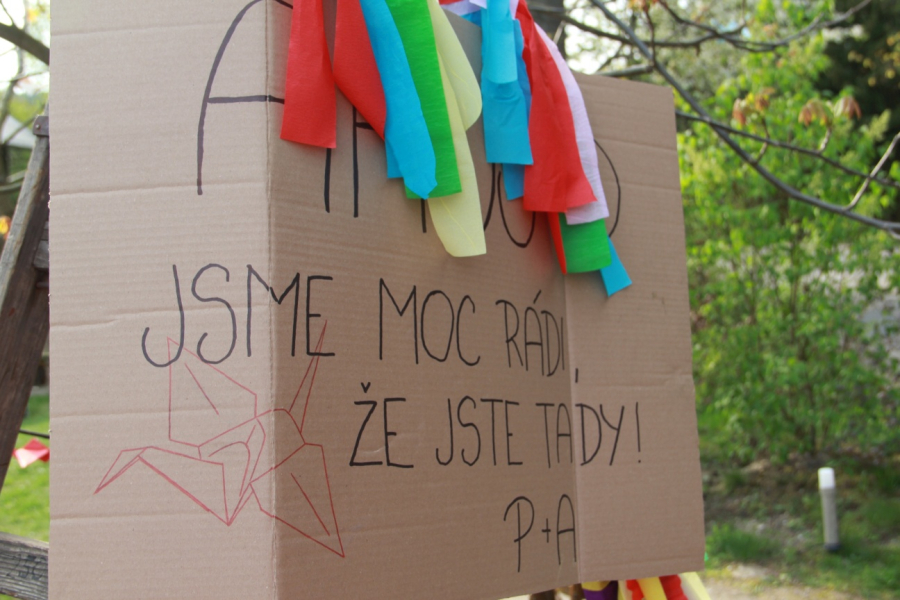 JSME MOC RÁDI,
ŽE JSTE TADY!
P+A